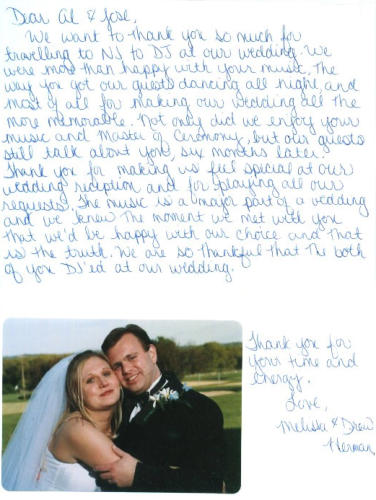 Dear Al & Jose,
We want to thank you so much for
travelling to NJ to DJ at our wedding. We
were more than happy with your music. The
way you got our guests dancing all night, and
most of all for making our wedding all the
more memorable. Not only did we enjoy your
music and Master of Ceremony, but our guests
still talk about you, six months later.
Thank you for making us feel special at our
wedding reception and for playing all our
requests. The music is a major part of a wedding
and we knew the moment we met with you
that we'd be happy with our choice and that
is the truth. We are so thankful that the both
of you DJ'ed at our wedding.
Thank you for
your time and
energy.
Love,
Melissa & Drew
Herman